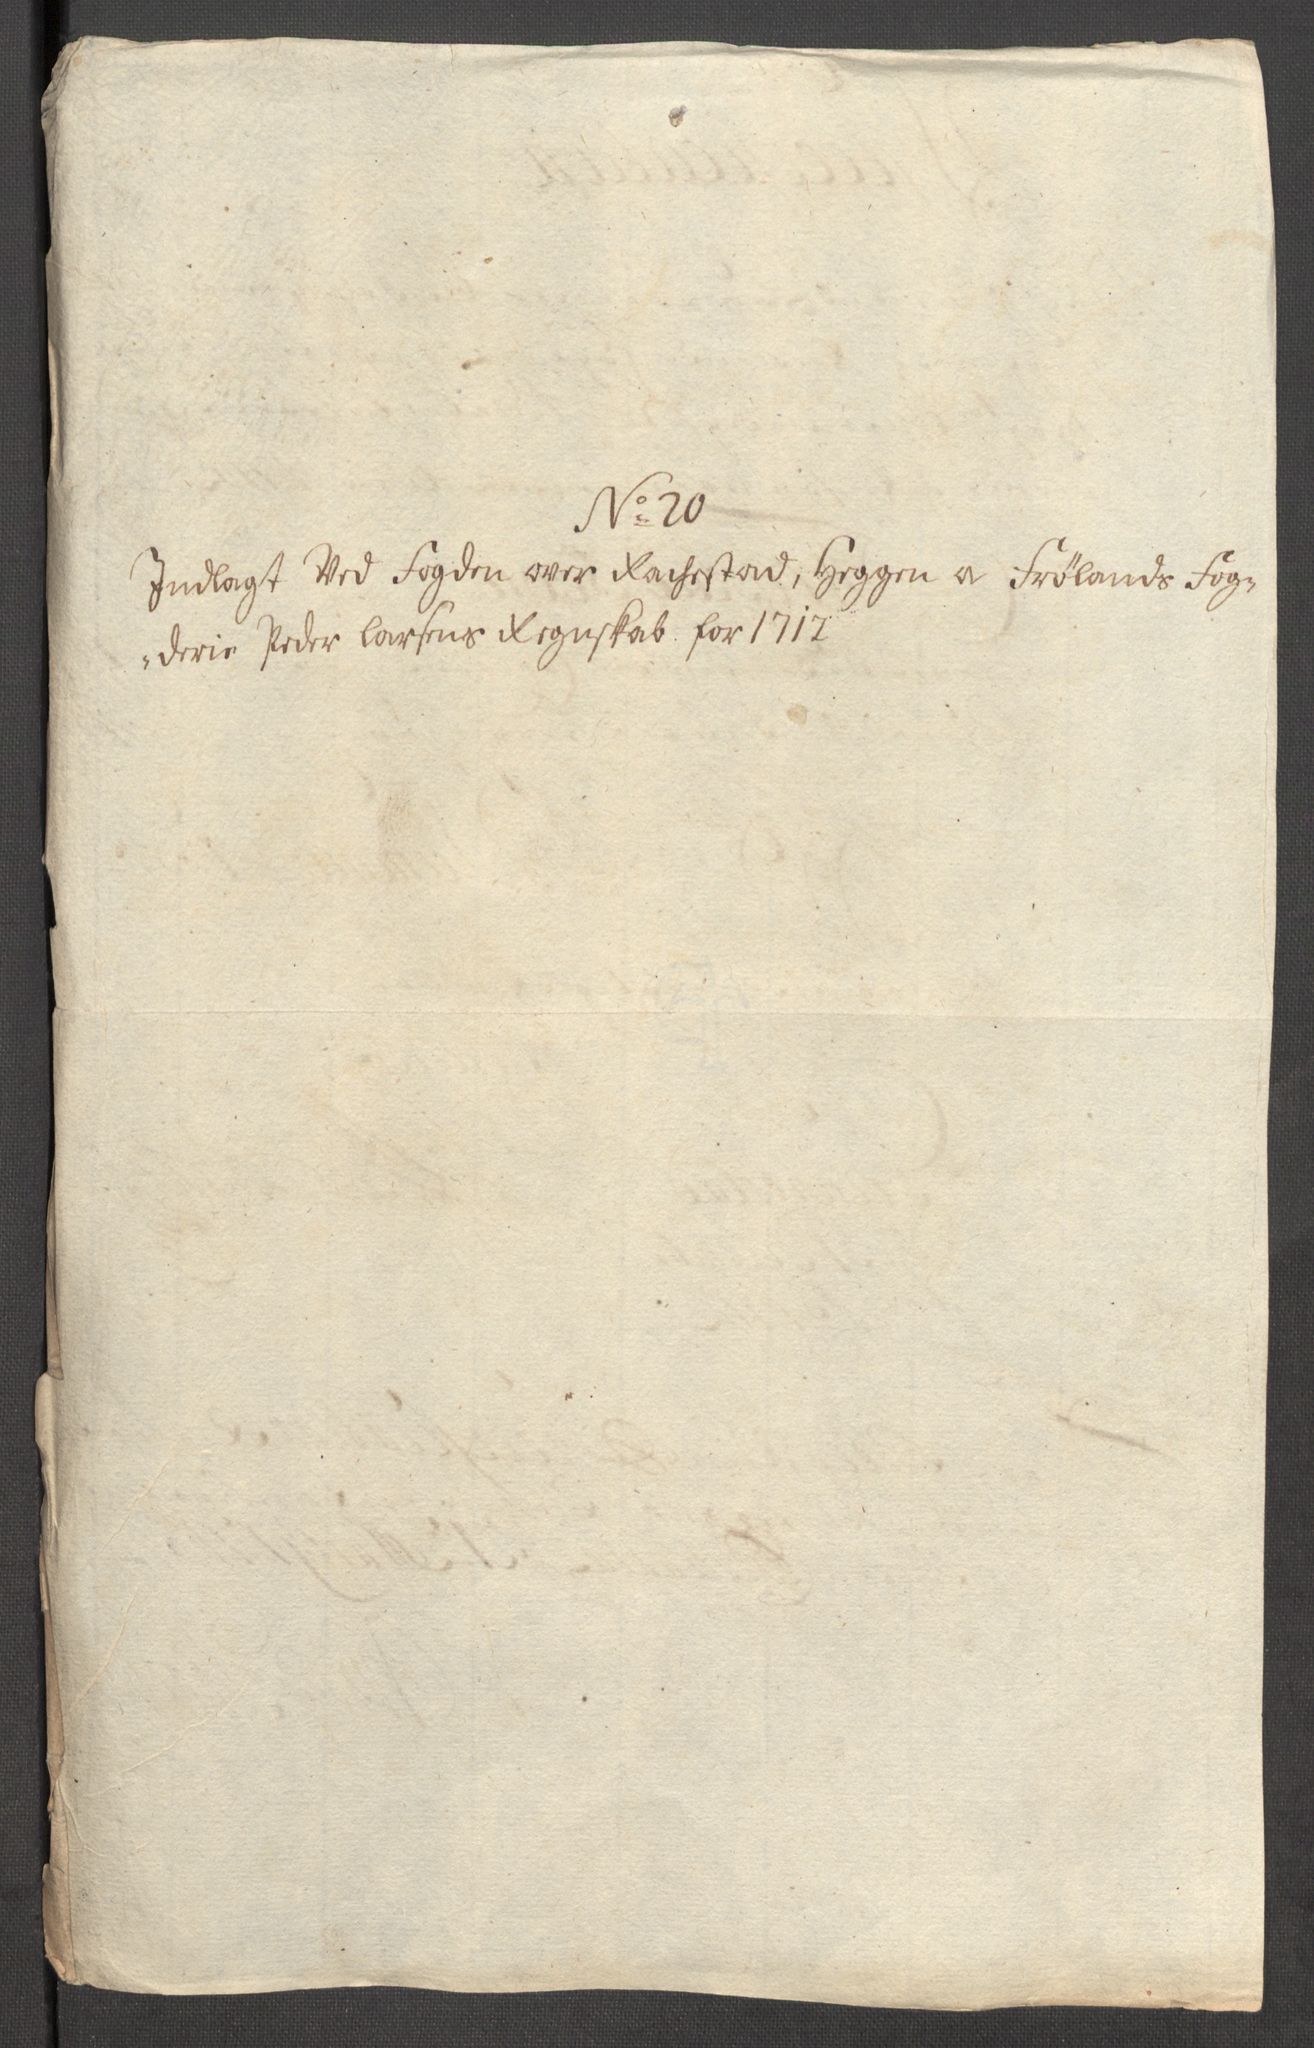 No: 20
Indlagt Ved Fogden over Rachestad, Heggen a Frølands Fog-
-derie Peder Larsens Regnskab for 1712